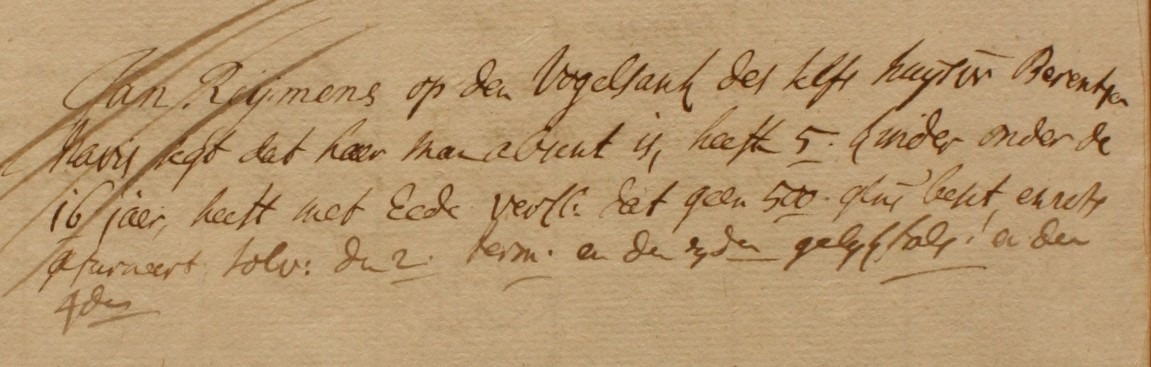 Jan Reijmens op den Vogelsank des selfs huijsvr Berentjen
Mavis segt dat haer man absent is, heeft 5 kinder onder de
16 jaer, heeft met Eede verkl: dat geen 500 gl. besit, en
afturneert solv: den 2. term. en den 3den gelijkfals! en den
4den